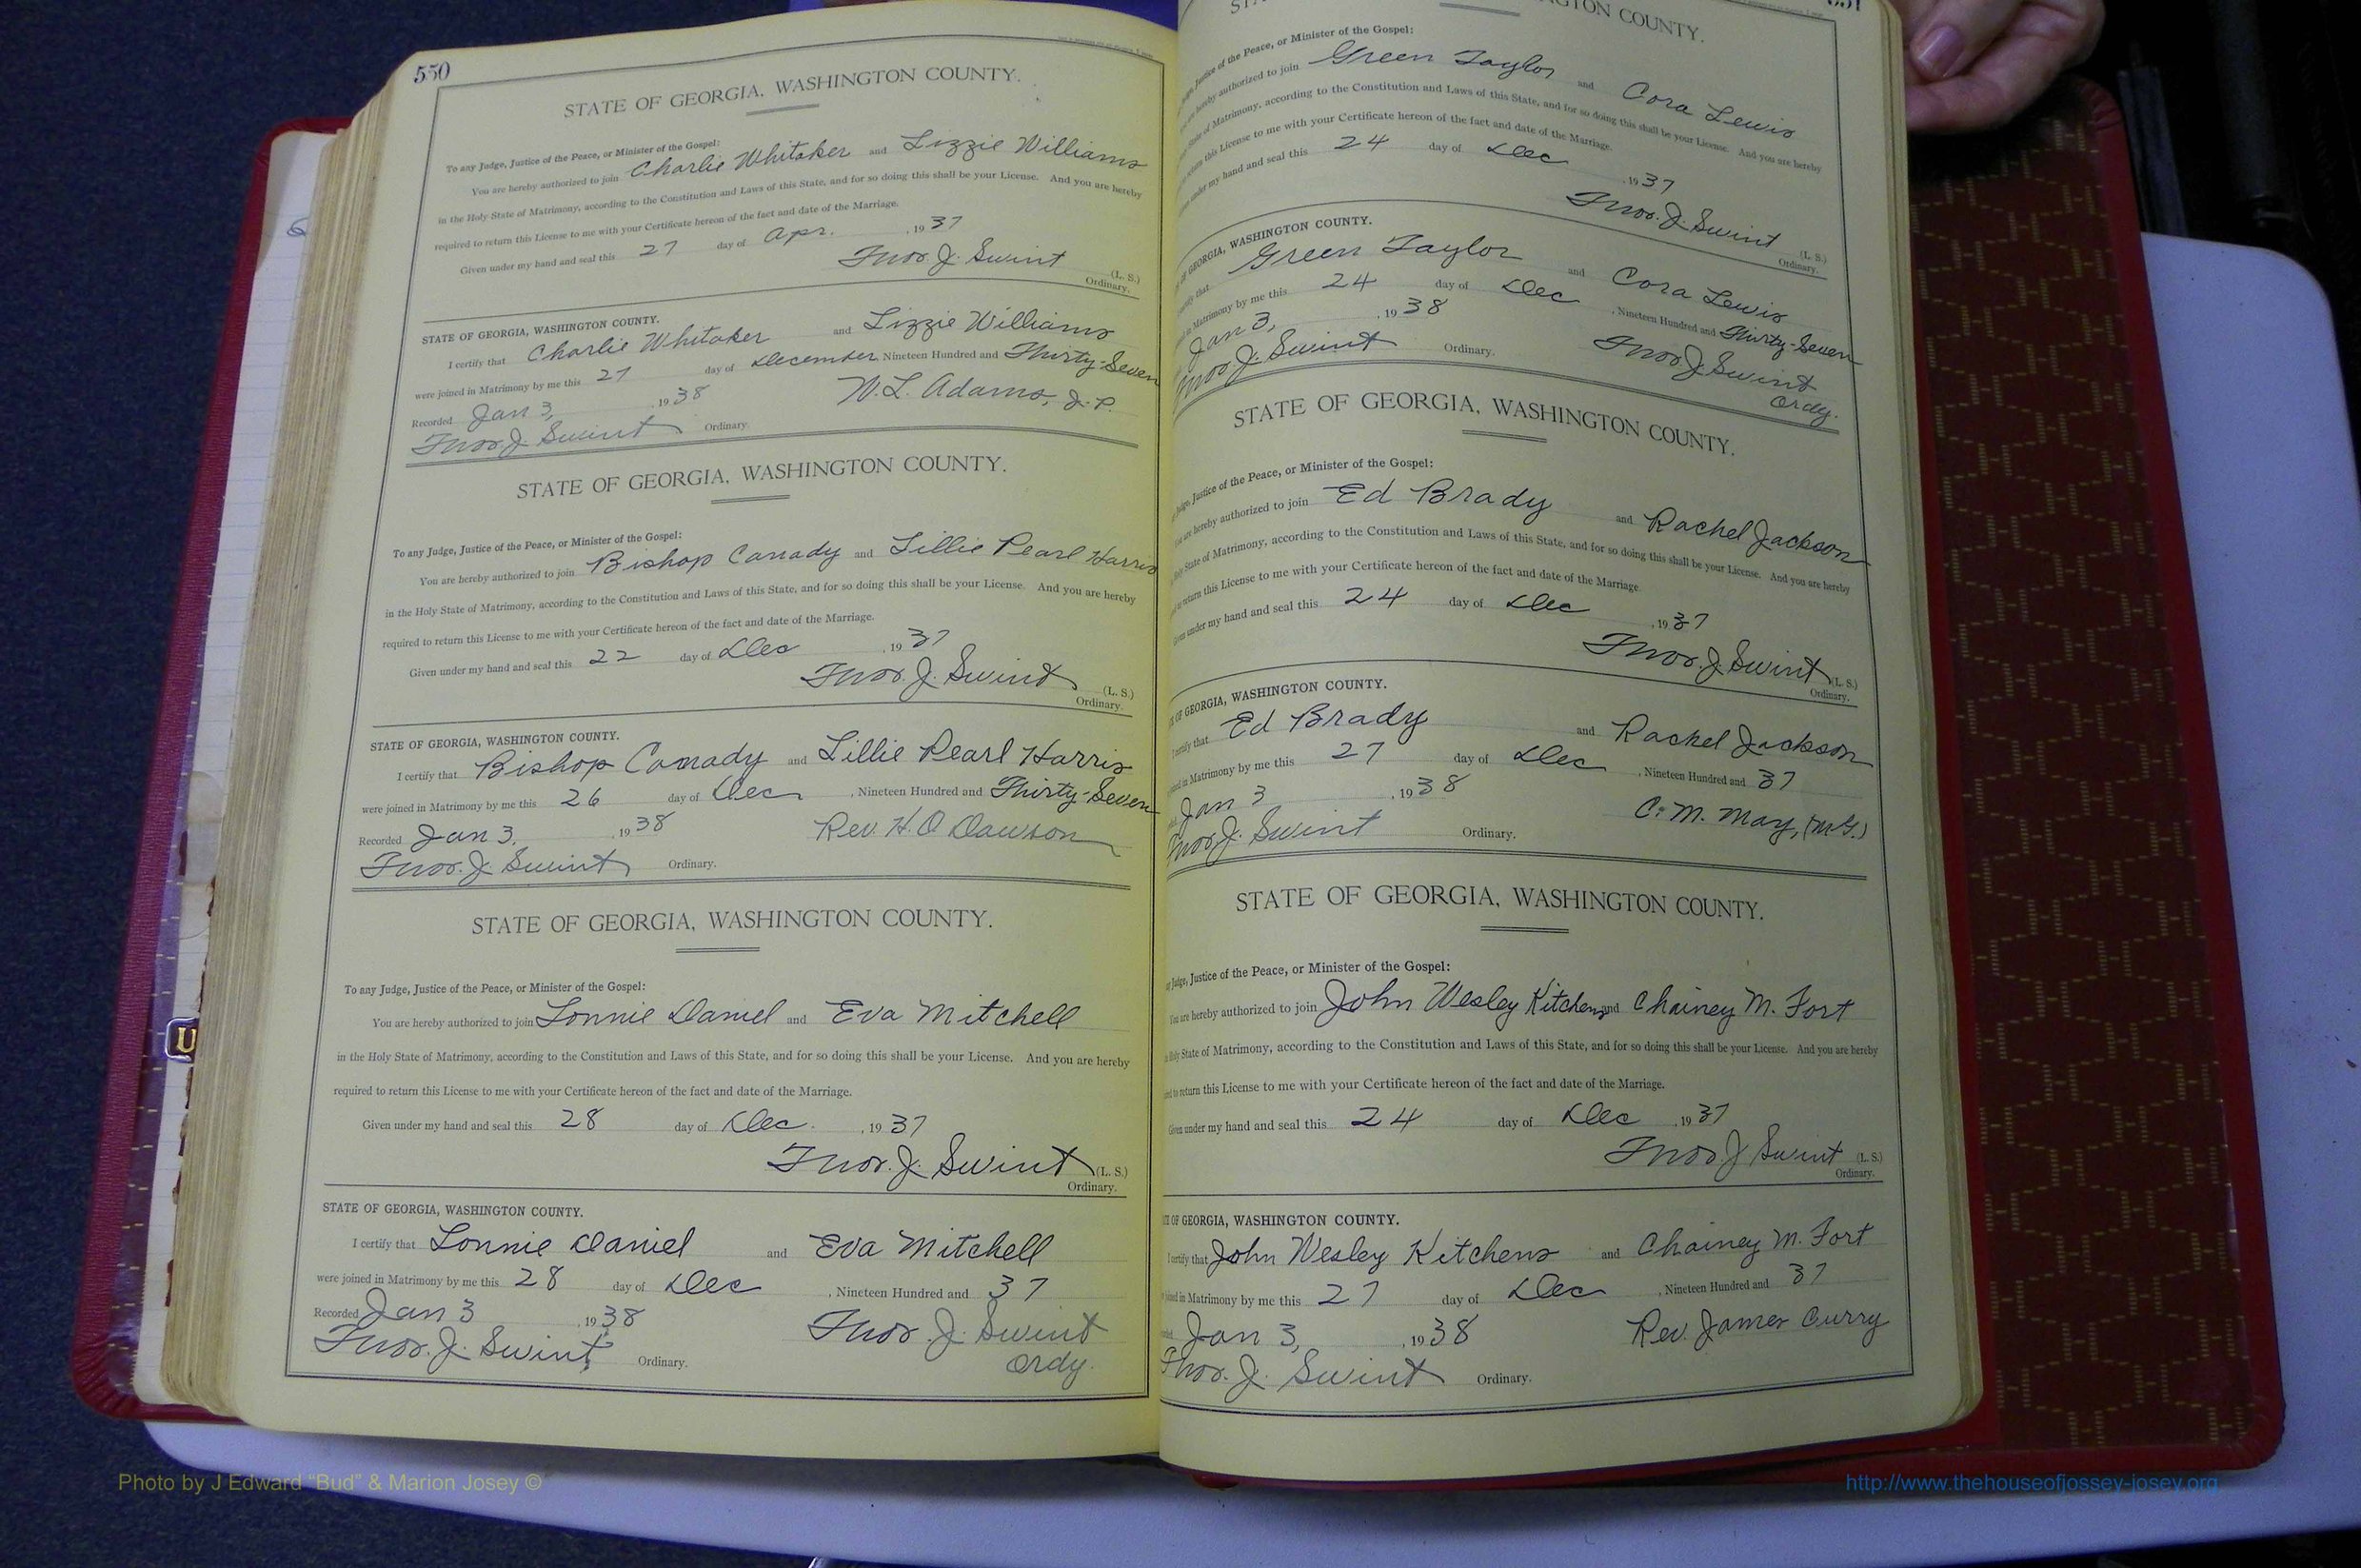 550
STATE OF GEORGIA, WASHINGTON COUNTY.
To any Judge, Justice of the Peace, or Minister of the Gospel:
You are hereby authorized to join Charlie Whitaker and Lizzie Williams
in the Holy State of Matrimony, according to the Constitution and Laws of this State, and for so doing this shall be your License. And you are hereby
required to return this License to me with your Certificate hereon of the fact and date of the Marriage.
Given under my hand and seal this 27 day of Apr. , 1937
Thos. J. Swint (L. S.)
Ordinary.
STATE OF GEORGIA, WASHINGTON COUNTY.
I certify that Charlie Whitaker and Lizzie Williams
were joined in Matrimony by me this 27 day of December Nineteen Hundred and Thirty-Seven
Recorded Jan 3, , 1938 W. L. Adams, J. P.
Thos. J. Swint Ordinary.
STATE OF GEORGIA, WASHINGTON COUNTY.
To any Judge, Justice of the Peace, or Minister of the Gospel:
You are hereby authorized to join Bishop Canady and Lillie Pearl Harris
in the Holy State of Matrimony, according to the Constitution and Laws of this State, and for so doing this shall be your License. And you are hereby
required to return this License to me with your Certificate hereon of the fact and date of the Marriage.
Given under my hand and seal this 22 day of Dec , 1937
Thos. J. Swint (L. S.)
Ordinary.
STATE OF GEORGIA, WASHINGTON COUNTY.
I certify that Bishop Canady and Lillie Pearl Harris
were joined in Matrimony by me this 26 day of Dec , Nineteen Hundred and Thirty-Seven
Recorded Jan 3, , 1938 Rev. H. O Dawson
Thos. J. Swint Ordinary.
STATE OF GEORGIA, WASHINGTON COUNTY.
To any Judge, Justice of the Peace, or Minister of the Gospel:
You are hereby authorized to join Lonnie Daniel and Eva Mitchell
in the Holy State of Matrimony, according to the Constitution and Laws of this State, and for so doing this shall be your License. And you are hereby
required to return this License to me with your Certificate hereon of the fact and date of the Marriage.
Given under my hand and seal this 28 day of Dec. , 1937
Thos. J. Swint (L. S.)
Ordinary.
STATE OF GEORGIA, WASHINGTON COUNTY.
I certify that Lonnie Daniel and Eva Mitchell
were joined in Matrimony by me this 28 day of Dec , Nineteen Hundred and 37
Recorded Jan 3 , 1938 Thos. J. Swint
Thos. J. Swint Ordinary. Ordy.
551
COUNTY.
Justice of the Peace, or Minister of the Gospel:
hereby authorized to join Green Taylor and Cora Lewis
State of Matrimony, according to the Constitution and Laws of this State, and for so doing this shall be your License. And you are hereby
return this License to me with your Certificate hereon of the fact and date of the Marriage.
under my hand and seal this 24 day of Dec , 1937
Thos. J. Swint (L. S.)
Ordinary.
OF GEORGIA, WASHINGTON COUNTY.
certify that Green Taylor and Cora Lewis
in Matrimony by me this 24 day of Dec , Nineteen Hundred and Thirty-Seven
Jan 3, , 1938 Thos J. Swint
Thos. J. Swint Ordinary. Ordy.
STATE OF GEORGIA, WASHINGTON COUNTY.
Judge, Justice of the Peace, or Minister of the Gospel:
You are hereby authorized to join Ed Brady and Rachel Jackson
Holy State of Matrimony, according to the Constitution and Laws of this State, and for so doing this shall be your License. And you are hereby
return this License to me with your Certificate hereon of the fact and date of the Marriage.
Given under my hand and seal this 24 day of Dec , 1937
Thos. J. Swint (L. S.)
Ordinary.
OF GEORGIA, WASHINGTON COUNTY.
I certify that Ed Brady and Rachel Jackson
in Matrimony by me this 27 day of Dec , Nineteen Hundred and 37
Jan 3 , 1938 C. M. May, (M.G.)
Thos. J. Swint Ordinary.
STATE OF GEORGIA, WASHINGTON COUNTY.
Judge, Justice of the Peace, or Minister of the Gospel:
You are hereby authorized to join John Wesley Kitchens and Chainey M. Fort
Holy State of Matrimony, according to the Constitution and Laws of this State, and for so doing this shall be your License. And you are hereby
to return this License to me with your Certificate hereon of the fact and date of the Marriage.
Given under my hand and seal this 24 day of Dec , 1937
Thos. J Swint (L. S.)
Ordinary.
OF GEORGIA, WASHINGTON COUNTY.
I certify that John Wesley Kitchens and Chainey M. Fort
joined in Matrimony by me this 27 day of Dec , Nineteen Hundred and 37
Jan 3, , 1938 Rev. James Curry
Thos. J. Swint Ordinary.
Photo by J Edward “Bud” & Marion Josey ©
http://www.thehouseofjossey-josey.org